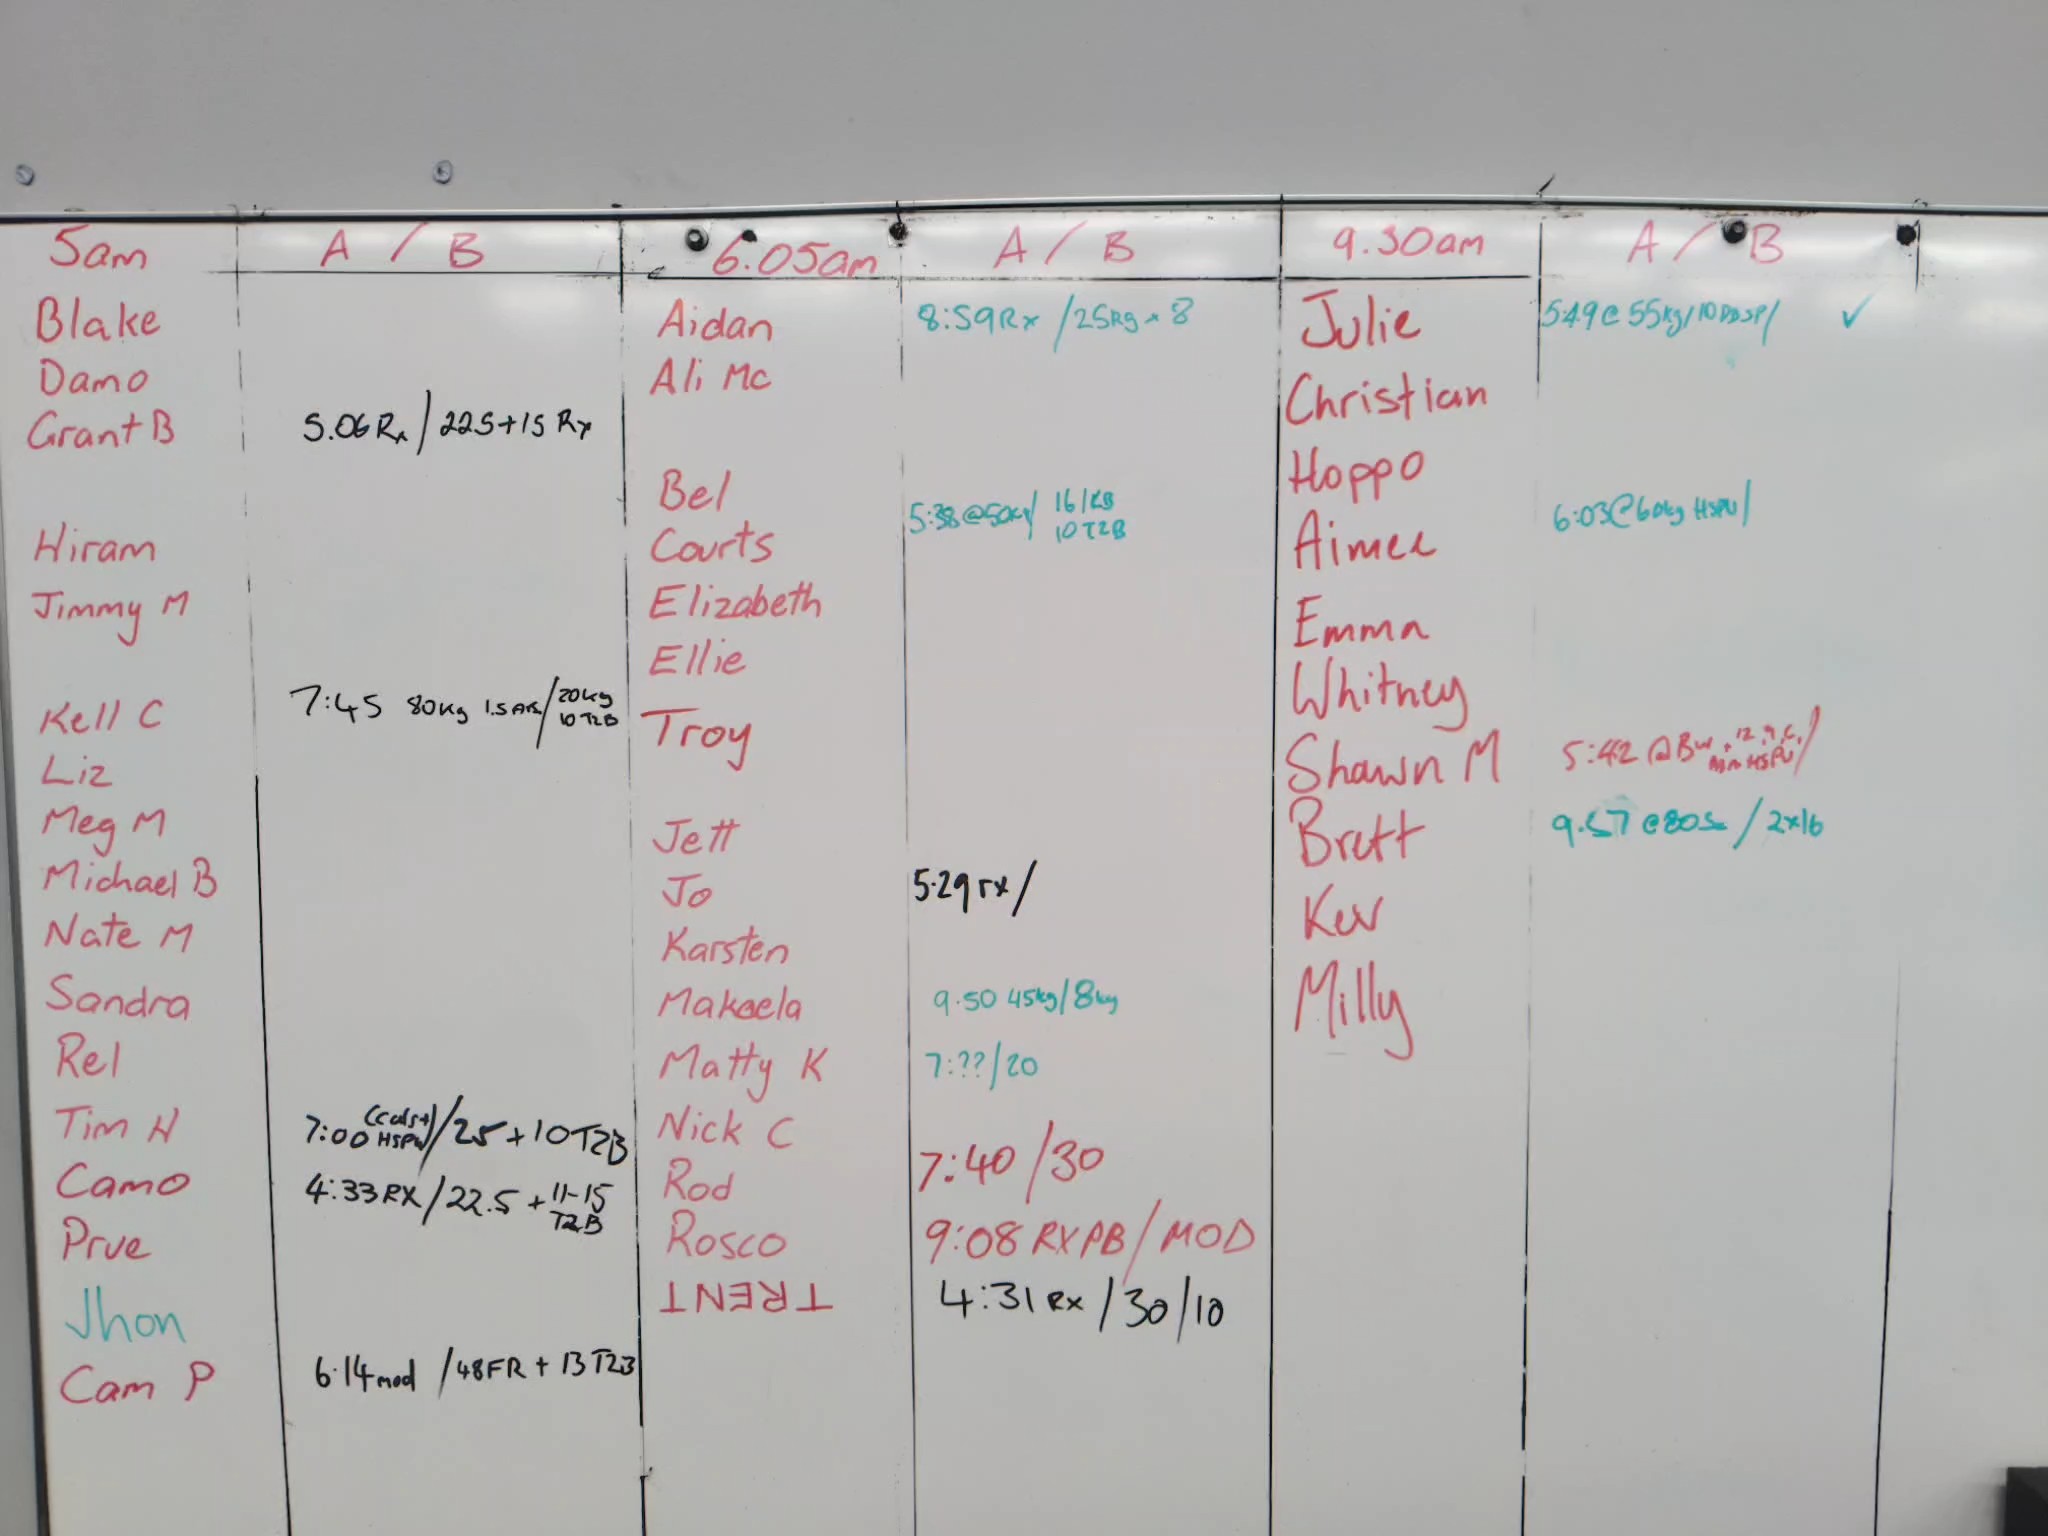 5am A / B 6.05am A / B 9.30am A / B
Blake Aidan 8:59Rx /25Kg x 8 Julie 5:49@55kg/10DBSP/ ✓
Damo Ali Mc Christian
Grant B 5.06Rx/22.5+15 Rx
Bel Hoppo
Hiram Courts 5:38@50kg/ 16/KB
10 T2B Aimee 6:03@60kg HSPU/
Jimmy M Elizabeth Emma
Ellie Whitney
Kell C 7:45 80kg /20kg
10 T2B Troy Shawn M 5:42 @BW HSPU/
Liz
Meg M Jett Brett 9.57 / 2x16
Michael B Jo 5.29 rx/ Kev
Nate M Karsten
Sandra Makaela 9.50 45kg/8kg Milly
Rel Matty K 7:??/20
Tim H 7:00 HSPU)/25+10T2B Nick C
Camo 4:33RX/22.5 + 11-15
T2B Rod 7:40/30
Prue Rosco 9:08 RXPB/MOD
Jhon TRENT 4:31 RX/30/10
Cam P 6.14mod /48FR + 13 T2B